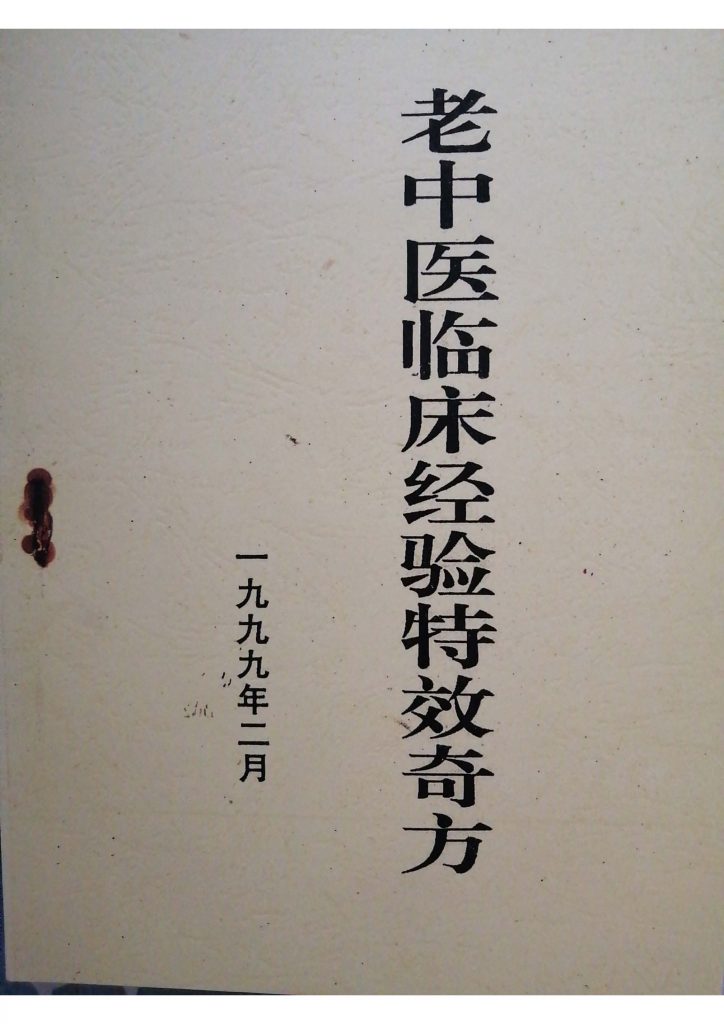 老中医临床经验特效奇方
一九九九年二月